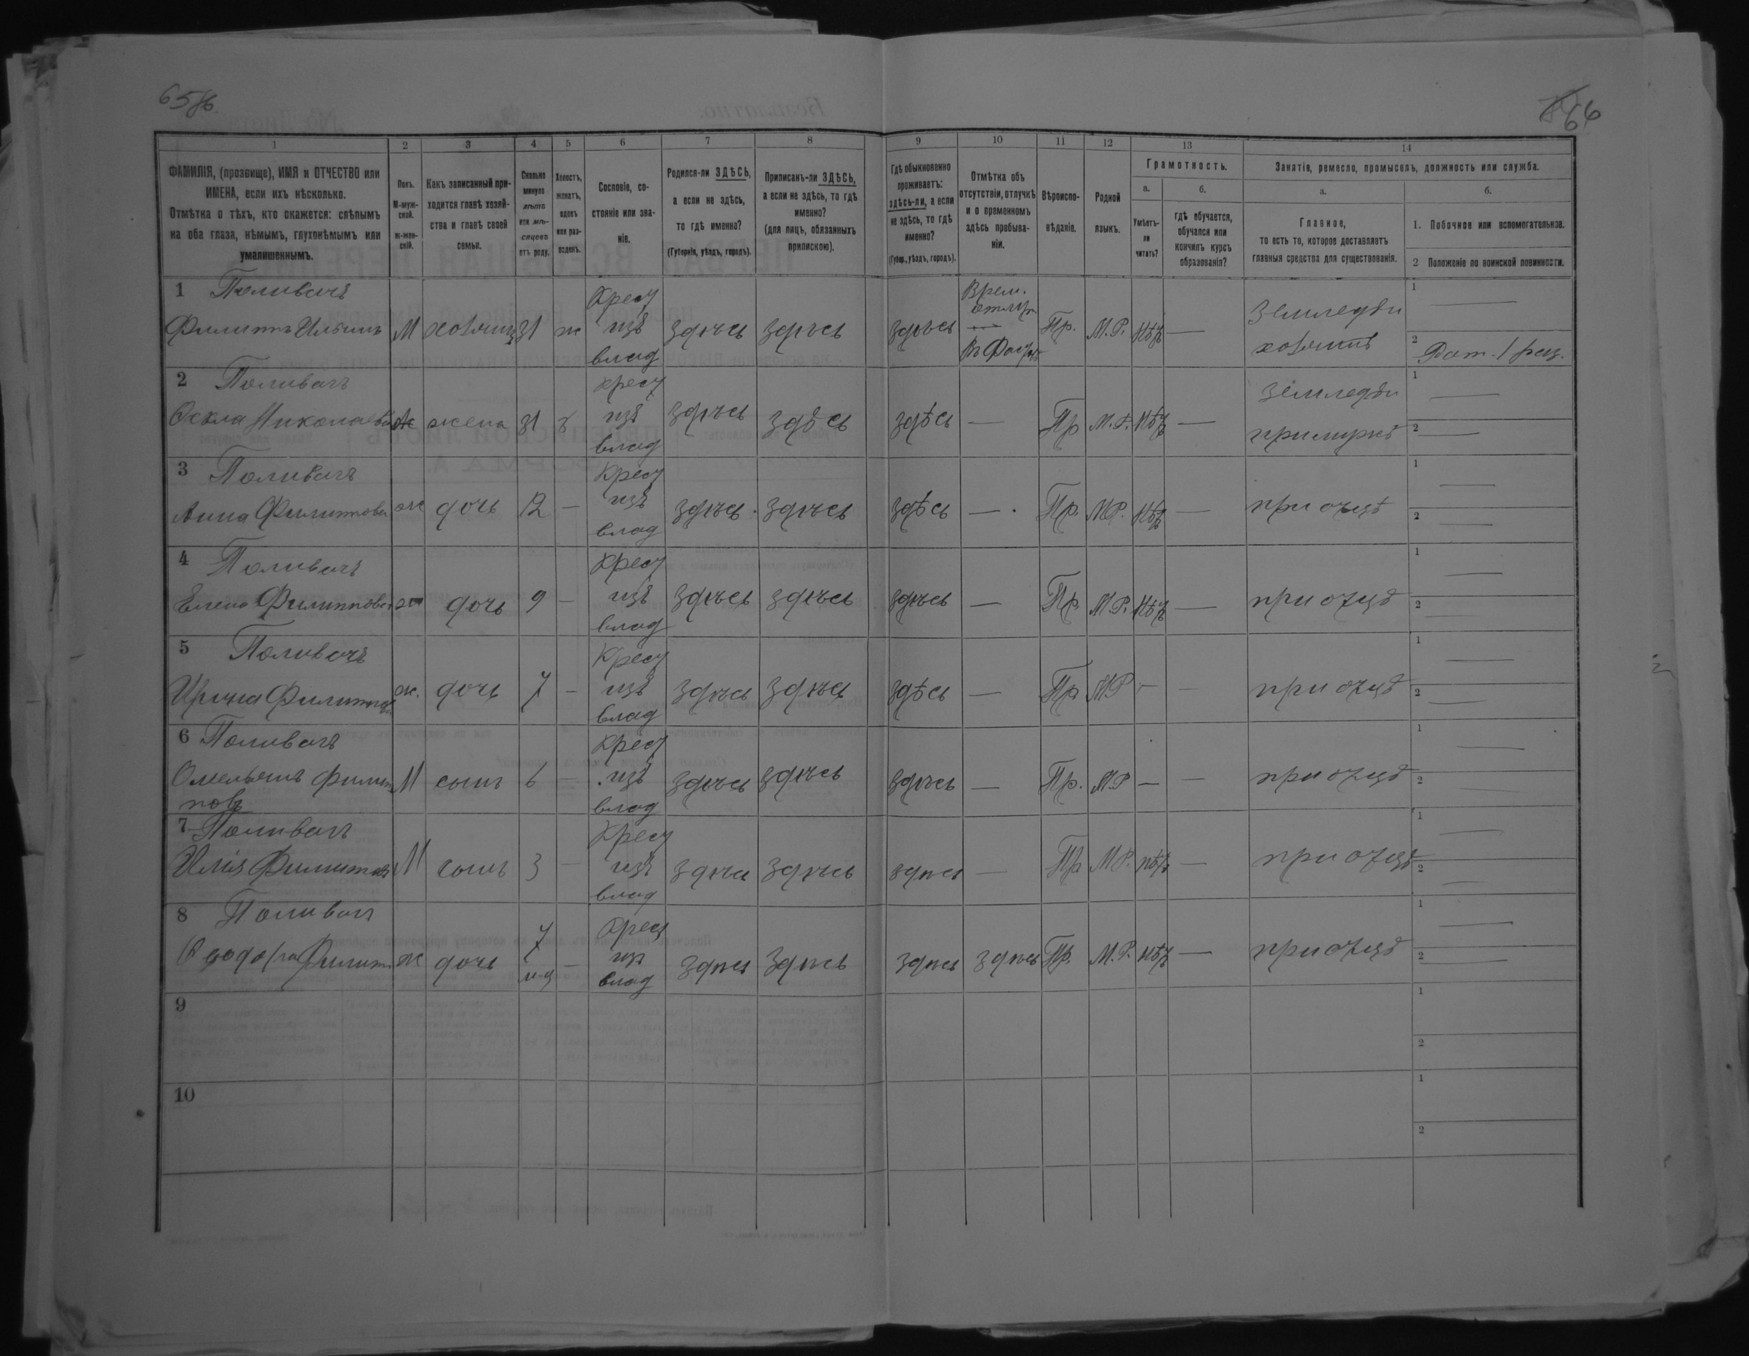 65
66
1
2
3
4
5
6
7
8
9
10
11
12
13
14
ФАМИЛІЯ, (прозвище), ИМЯ и ОТЧЕСТВО или
ИМЕНА, если ихъ нѣсколько.
Отмѣтка о тѣхъ, кто окажется: слѣпымъ
на оба глаза, нѣмымъ, глухонѣмымъ или
умалишеннымъ.
Полъ.
М-муж-
ской.
Ж-жен-
скій.
Какъ записанный при-
ходится главѣ хозяй-
ства и главѣ своей
семьи.
Сколько
минуло
лѣтъ
или мѣ-
сяцевъ
отъ роду.
Холостъ,
женатъ,
вдовъ
или раз-
веденъ.
Сословіе, со-
стояніе или зва-
ніе.
Родился-ли ЗДѢСЬ,
а если не здѣсь,
то гдѣ именно?
(Губернія, уѣздъ, городъ).
Приписанъ-ли ЗДѢСЬ,
а если не здѣсь, то гдѣ
именно?
(для лицъ, обязанныхъ
припискою).
Гдѣ обыкновенно
проживаетъ:
здѣсь-ли, а если
не здѣсь, то гдѣ
именно?
(Губер., уѣздъ, городъ).
Отмѣтка объ
отсутствіи, отлучкѣ
и о временномъ
здѣсь пребыва-
ніи.
Вѣроиспо-
вѣданіе.
Родной
языкъ.
Грамотность.
а.
Умѣетъ-
ли
читать?
б.
гдѣ обучается,
обучался или
кончилъ курсъ
образованія?
Занятіе, ремесло, промыселъ, должность или служба.
а.
Главное,
то есть то, которое доставляетъ
главныя средства для существованія.
б.
1. Побочное или вспомогательное.
2 Положеніе по воинской повинности.
1 Поливачъ
Филиппъ Ильинъ М хозяинъ 31 ж Крест изъ влад здѣсь здѣсь здѣсь Врем. отлуч. Пр. М.Р. нѣт — Земледѣл хозяинъ 1 — 2
2 Поливачъ
Фекла Николаева ж жена 31 з Крест изъ влад здѣсь здѣсь здѣсь — Пр М.Р. нѣт — Земледѣл при мужѣ 1 — 2 —
3 Поливачъ
Анна Филиппова ж дочь 12 — Крест изъ влад здѣсь здѣсь здѣсь — Пр М.Р. нѣт — при отцѣ 1 — 2 —
4 Поливачъ
Елена Филиппова ж дочь 9 — Крест изъ влад здѣсь здѣсь здѣсь — Пр М.Р. нѣт — при отцѣ 1 — 2 —
5 Поливачъ
Ирина Филиппова ж. дочь 7 — Крест изъ влад здѣсь здѣсь здѣсь — Пр М.Р — — при отцѣ 1 — 2 —
6 Поливачъ
Омельянъ Филип
повъ М сынъ 6 — Крест изъ влад здѣсь здѣсь здѣсь — Пр. М.Р — — при отцѣ 1 — 2 —
7 Поливачъ
Илія Филиппов М сынъ 3 — Крест изъ влад здѣсь здѣсь здѣсь — Пр М.Р. нѣт — при отцѣ 1 — 2 —
8 Поливач
Филип ж дочь 7 м-ц — Крест из влад здѣсь здѣсь здѣсь здѣсь Пр. М.Р. нѣт — при отцѣ 1 — 2 —
9 1 2
10 1 2